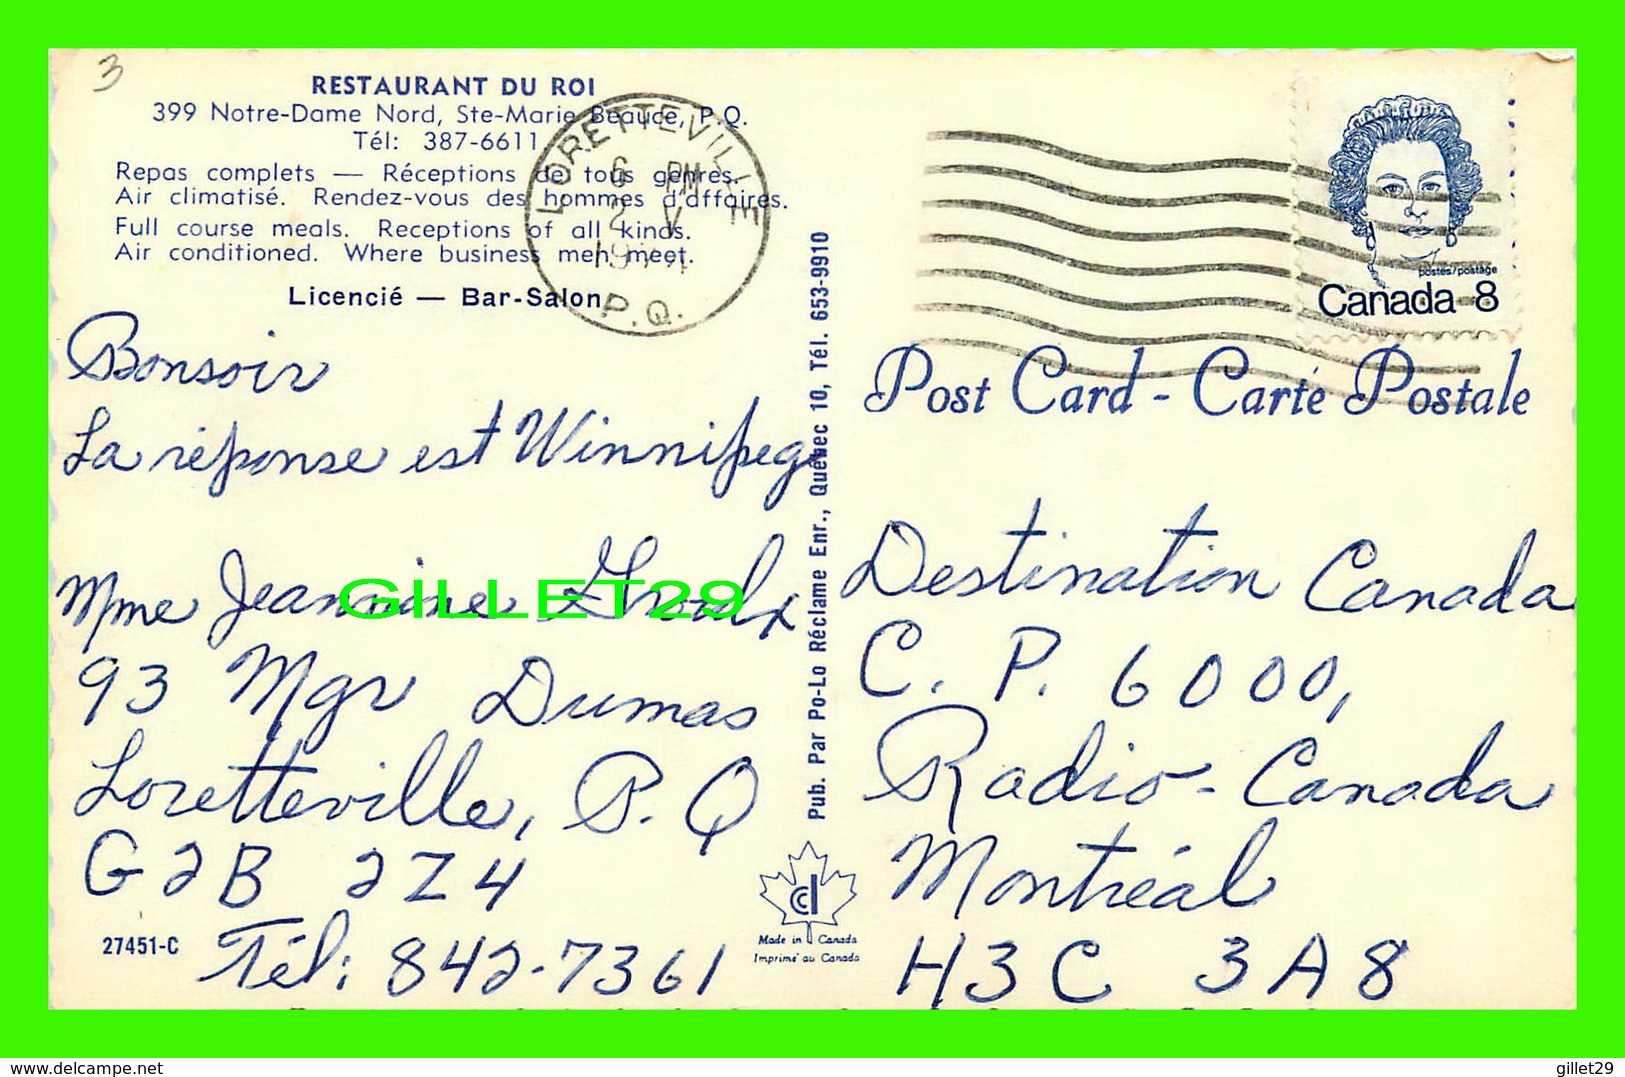 3
RESTAURANT DU ROI
399 Notre-Dame Nord, Ste-Marie Beauce, P.Q.
Tél: 387-6611
Repas complets — Réceptions de tous genres.
Air climatisé. Rendez-vous des hommes d'affaires.
Full course meals. Receptions of all kinds.
Air conditioned. Where business men meet.
Licencié — Bar-Salon
LORETTEVILLE
6 PM
2 V
P.Q.
postes/postage
Canada 8
Post Card - Carte Postale
Bonsoir
La réponse est Winnipeg
Mme Jeannine
93 Mgr Dumas
Loretteville, P.Q
G2B 2Z4
Tél: 842-7361
27451-C
GILLET29
Pub. Par Po-Lo Réclame Enr., Québec 10, Tél. 653-9910
Made in Canada
Imprimé au Canada
Destination Canada
C. P. 6000,
Radio-Canada
Montréal
H3C 3A8
www.delcampe.net
gillet29